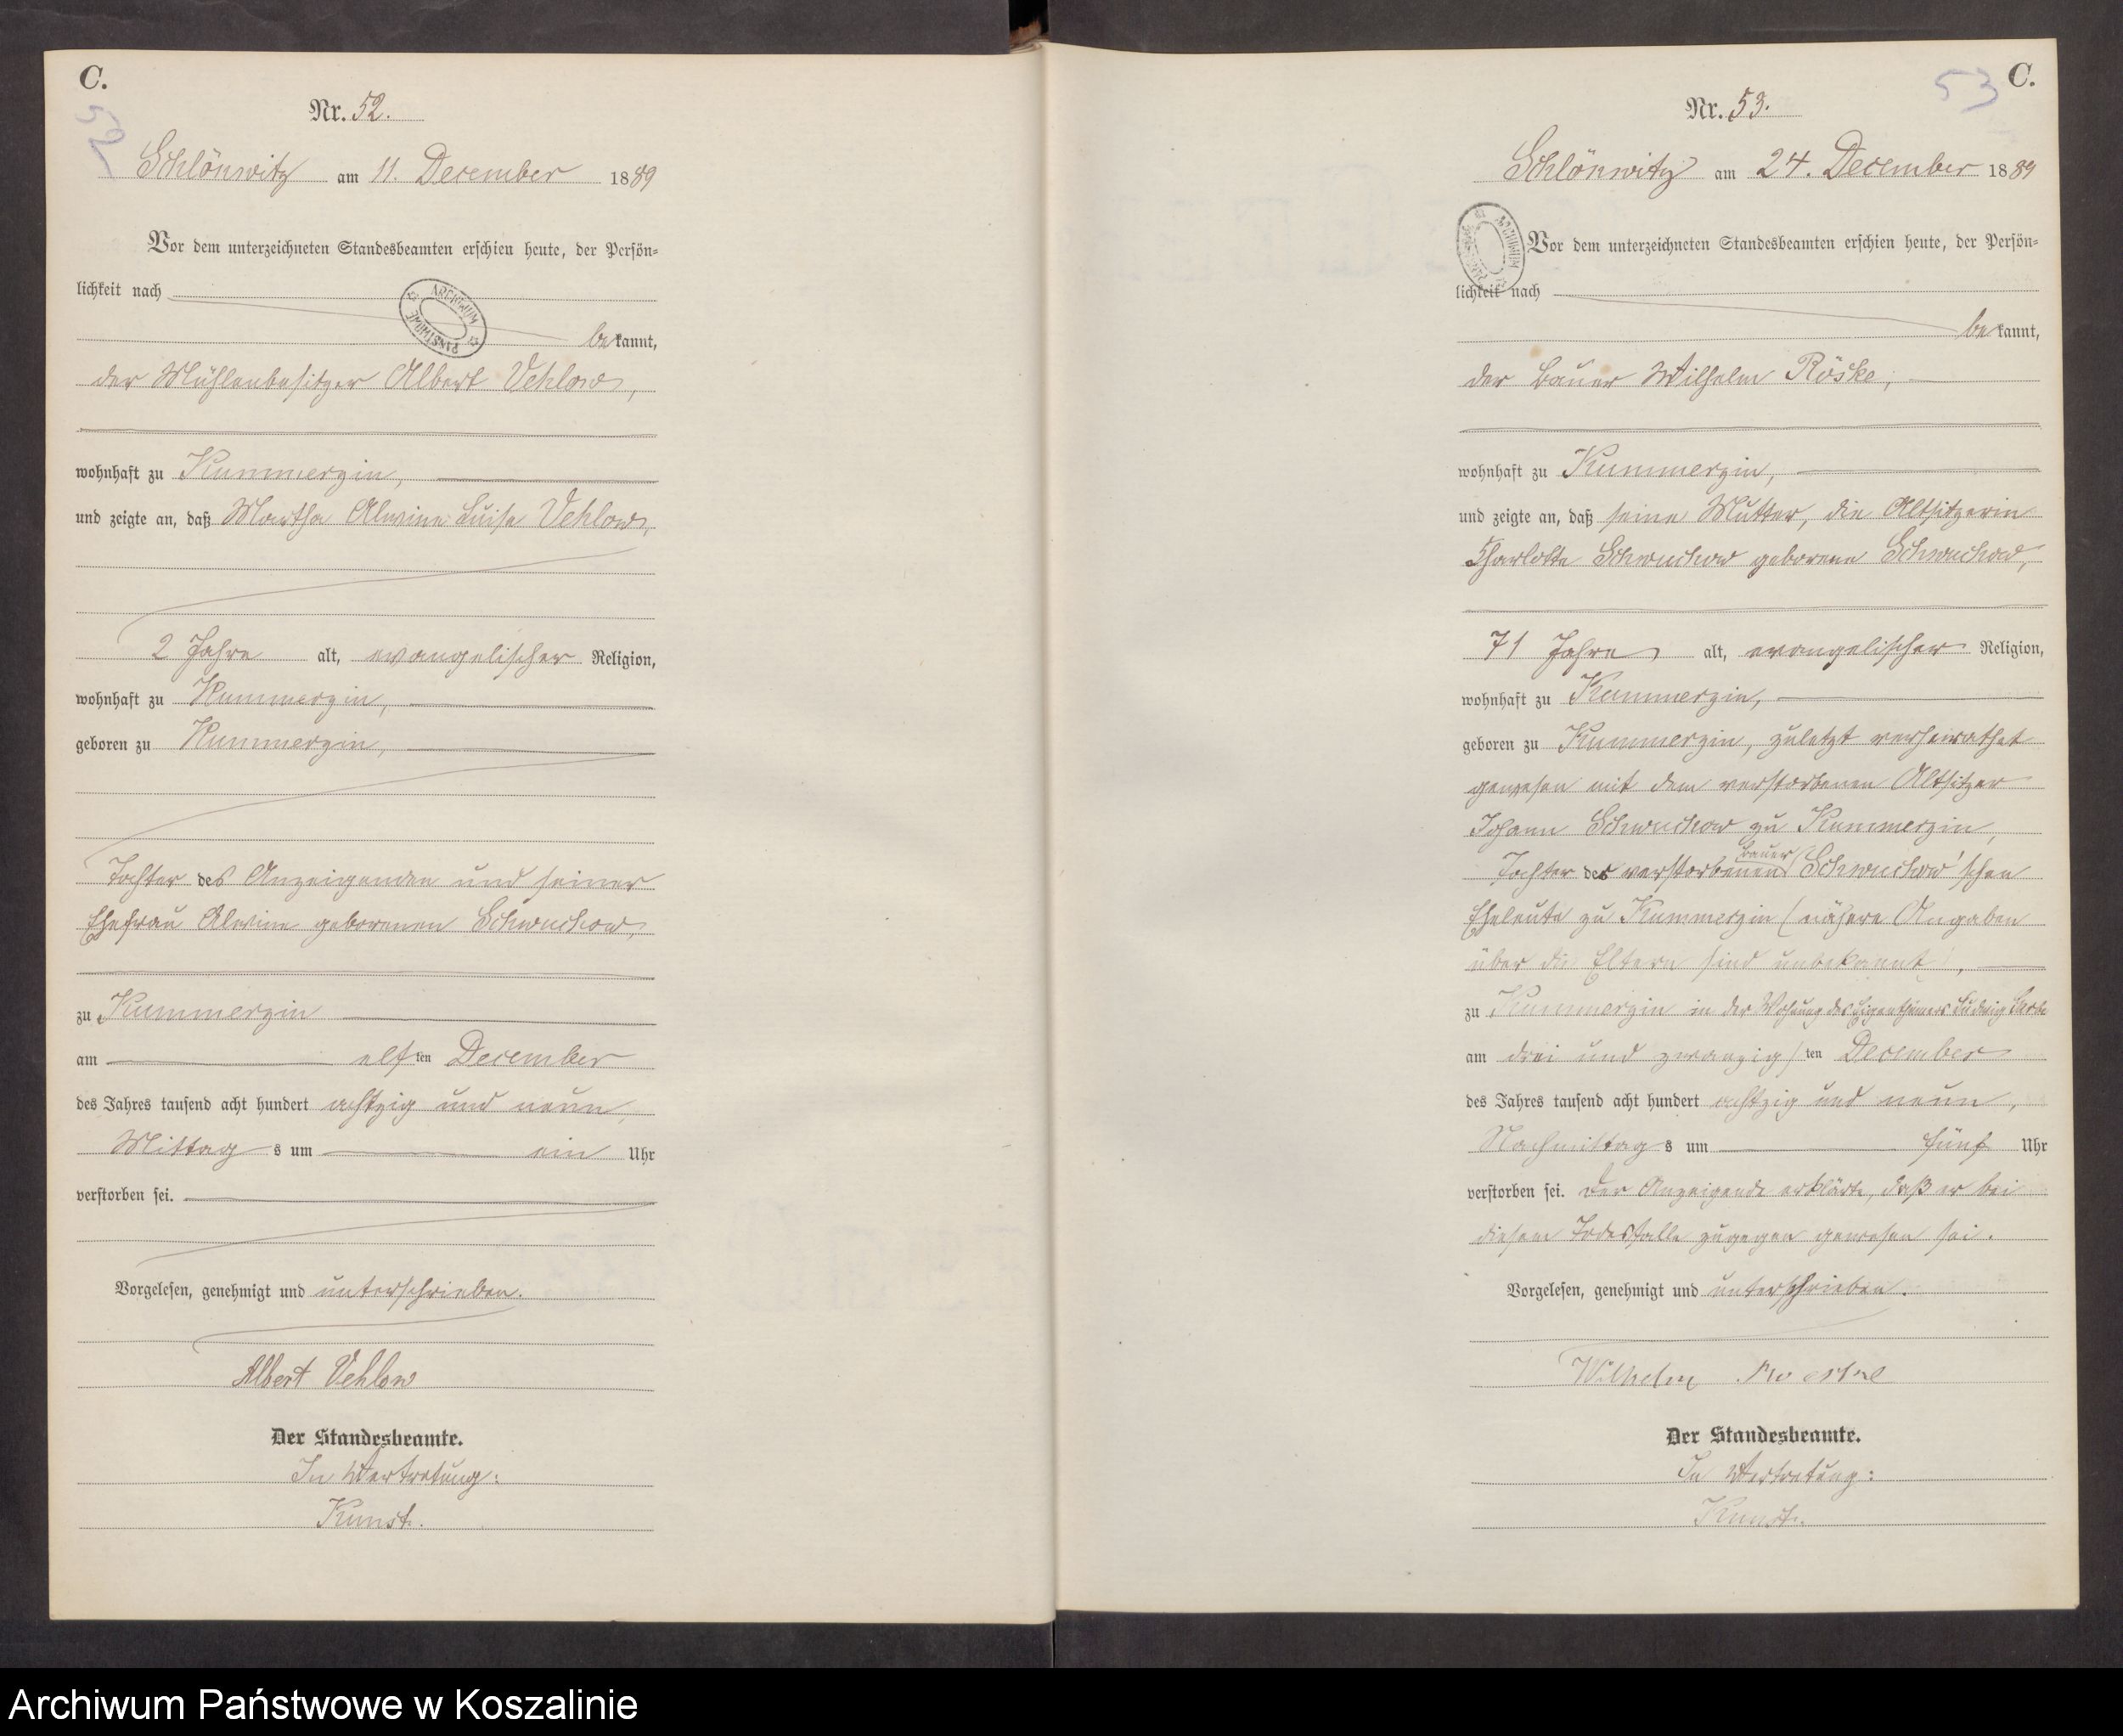 C.
52
Nr. 52.
Schlönwitz am 11. December 1889
Vor dem unterzeichneten Standesbeamten erschien heute, der Persön-
lichkeit nach
bekannt,
der Mühlenbesitzer Albert Vehlow,
wohnhaft zu Kummerzin,
und zeigte an, daß Martha Alwine Luise Vehlow,
2 Jahre alt, evangelischer Religion,
wohnhaft zu Kummerzin,
geboren zu Kummerzin,
Tochter des Anzeigenden und seiner
Ehefrau Alwine geborenen Schwuchow,
zu Kummerzin
am elften December
des Jahres tausend acht hundert achtzig und neun,
Mittags um ein Uhr
verstorben sei.
Vorgelesen, genehmigt und unterschrieben.
Albert Vehlow
Der Standesbeamte.
In Vertretung:
Kunst.
ARCHIWUM PAŃSTWOWE
53
C.
Nr. 53.
Schlönwitz am 24. December 1889
Vor dem unterzeichneten Standesbeamten erschien heute, der Persön-
lichkeit nach
bekannt,
der Bauer Wilhelm Röske,
wohnhaft zu Kummerzin,
und zeigte an, daß seine Mutter, die Altsitzerin
Charlotte Schwuchow geborene Schwuchow,
71 Jahre alt, evangelischer Religion,
wohnhaft zu Kummerzin,
geboren zu Kummerzin, zuletzt verheirathet
gewesen mit dem verstorbenen Altsitzer
Johann Schwuchow zu Kummerzin,
Tochter der verstorbenen Bauer Schwuchow'schen
Eheleute zu Kummerzin (nähere Angaben
über die Eltern sind unbekannt),
zu Kummerzin in der Wohnung des Eigenthümers Ludwig
am drei und zwanzigten December
des Jahres tausend acht hundert achtzig und neun,
Nachmittags um fünf Uhr
verstorben sei. Der Anzeigende erklärte, daß er bei
diesem Todesfalle zugegen gewesen sei.
Vorgelesen, genehmigt und unterschrieben.
Wilhelm Roeske
Der Standesbeamte.
In Vertretung:
Kunst.
ARCHIWUM PAŃSTWOWE
Archiwum Państwowe w Koszalinie